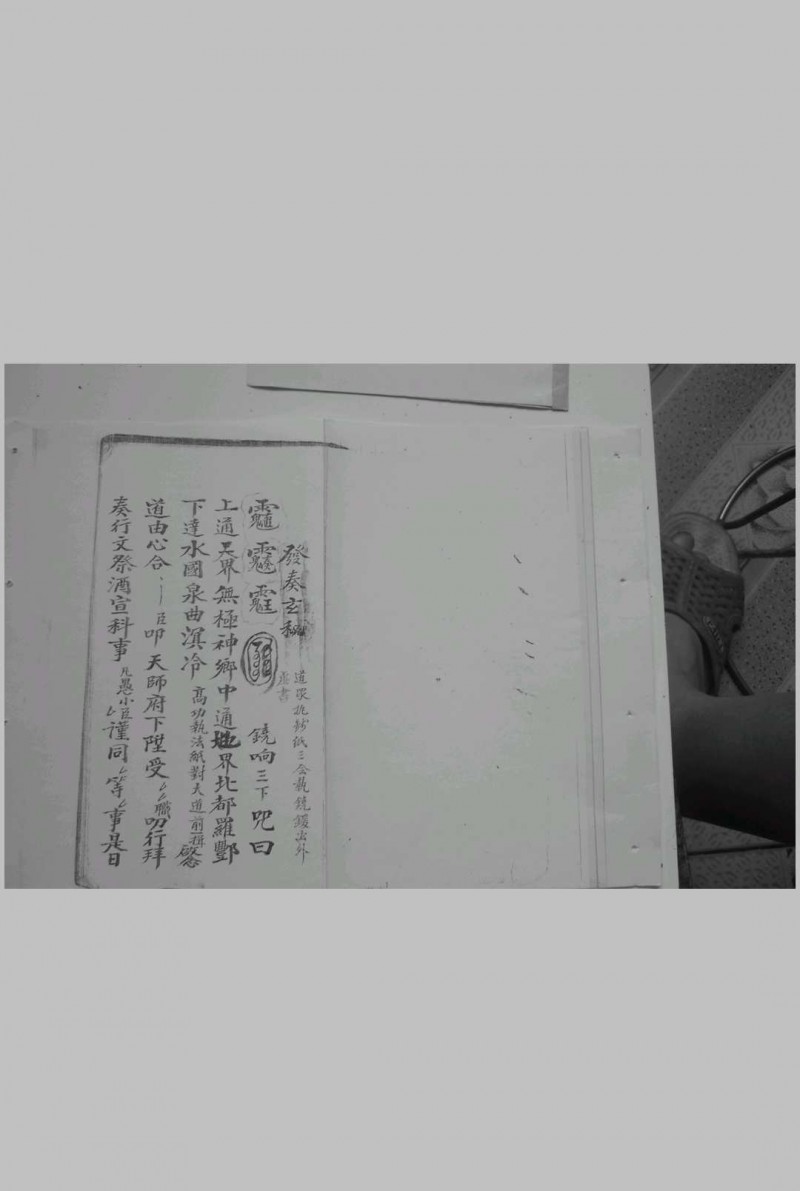 發奏玄秘 道眾執 紙三合執鐃鈸出外
虛書
鐃响三下 咒曰
上通天界無極神鄉中通地界北都羅酆
下達水國泉曲溟泠 高功執法紙對大道前揖啟念
道由心合 臣叩天師府下陞受 職叨行拜
奏行文祭酒宣科事 凡愚小臣 謹同 等 事是日